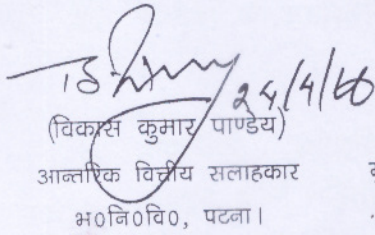 (विकास कुमार पाण्डेय)
आन्तरिक वित्तीय सलाहकार
भ०नि०वि०, पटना।